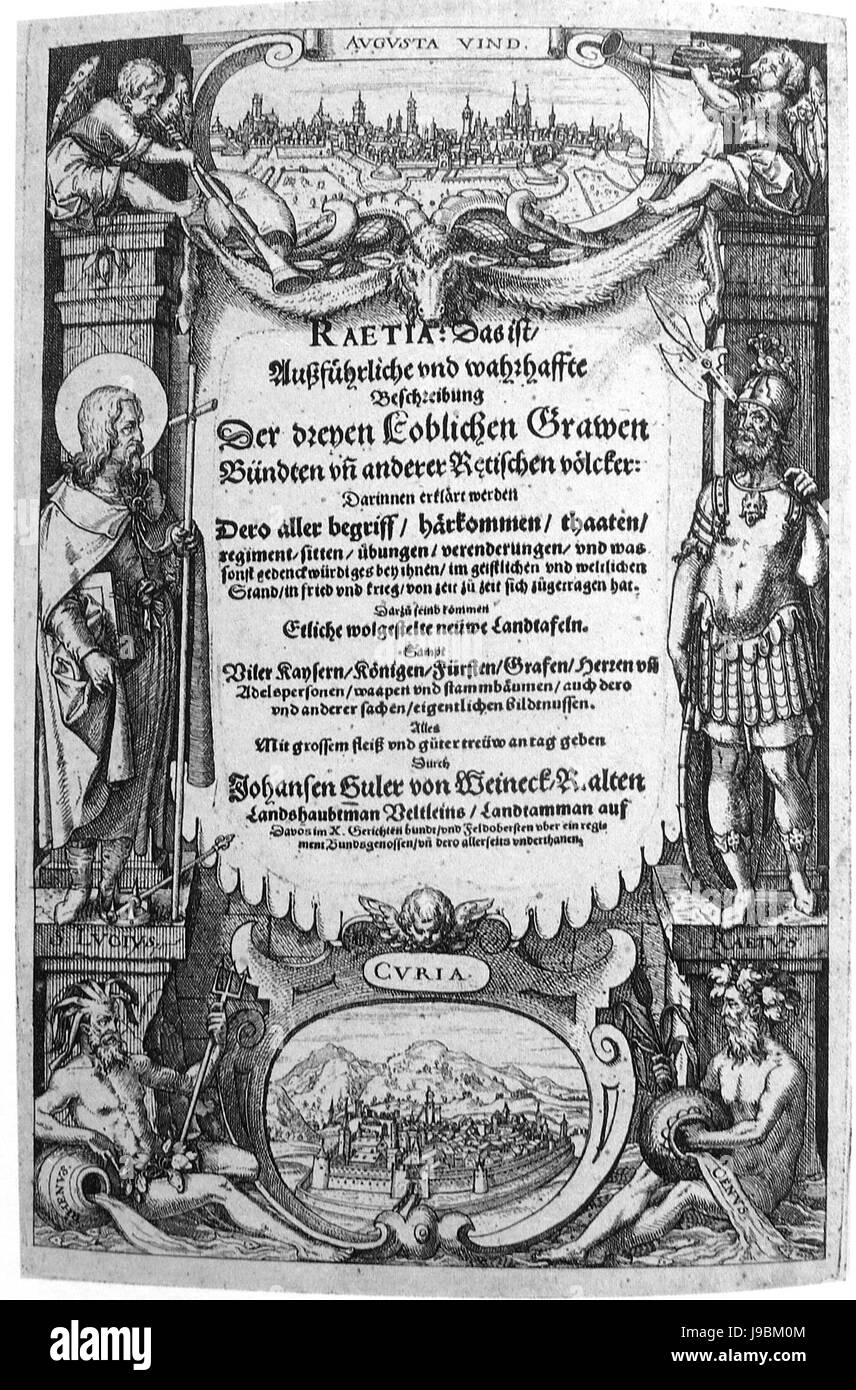 AVGVSTA VIND.
RAETIA: Das ist/
Außführliche vnd wahrhaffte
Beschreibung
Der dreyen Loblichen Grawen
Bündten vn̄ anderer Rętischen völcker:
Darinnen erklärt werden
Dero aller begriff/ härkommen/ thaaten/
regiment/ sitten/ übungen/ verenderungen/ vnd was
sonst gedenckwürdiges bey ihnen/ im geistlichen vnd weltlichen
Stand/ in fried vnd krieg/ von zeit zů zeit sich zůgetragen hat.
Darzů seind kommen
Etliche wolgestelte neüwe Landtafeln.
Sampt
Viler Kaysern/ Königen/ Fürsten/ Grafen/ Herren vn̄
Adelspersonen/ waapen vnd stammbäumen/ auch dero
vnd anderer sachen/ eigentlichen Bildtnussen.
Alles
Mit grossem fleiß vnd gůter treüw an tag geben
Durch
Johansen Guler von Weineck/
Landshaubtman Veltleins/ Landtamman auf
Davos im X. Gerichten bundt/ vnd Feldobersten vber ein regi-
ment Bundsgenossen/ vn̄ dero allerseits vnderthanen.
S LVCIVS.
RAETVS.
CVRIA.
RHENVS.
OENVS.
alamy
Image ID: J9BM0M
www.alamy.com